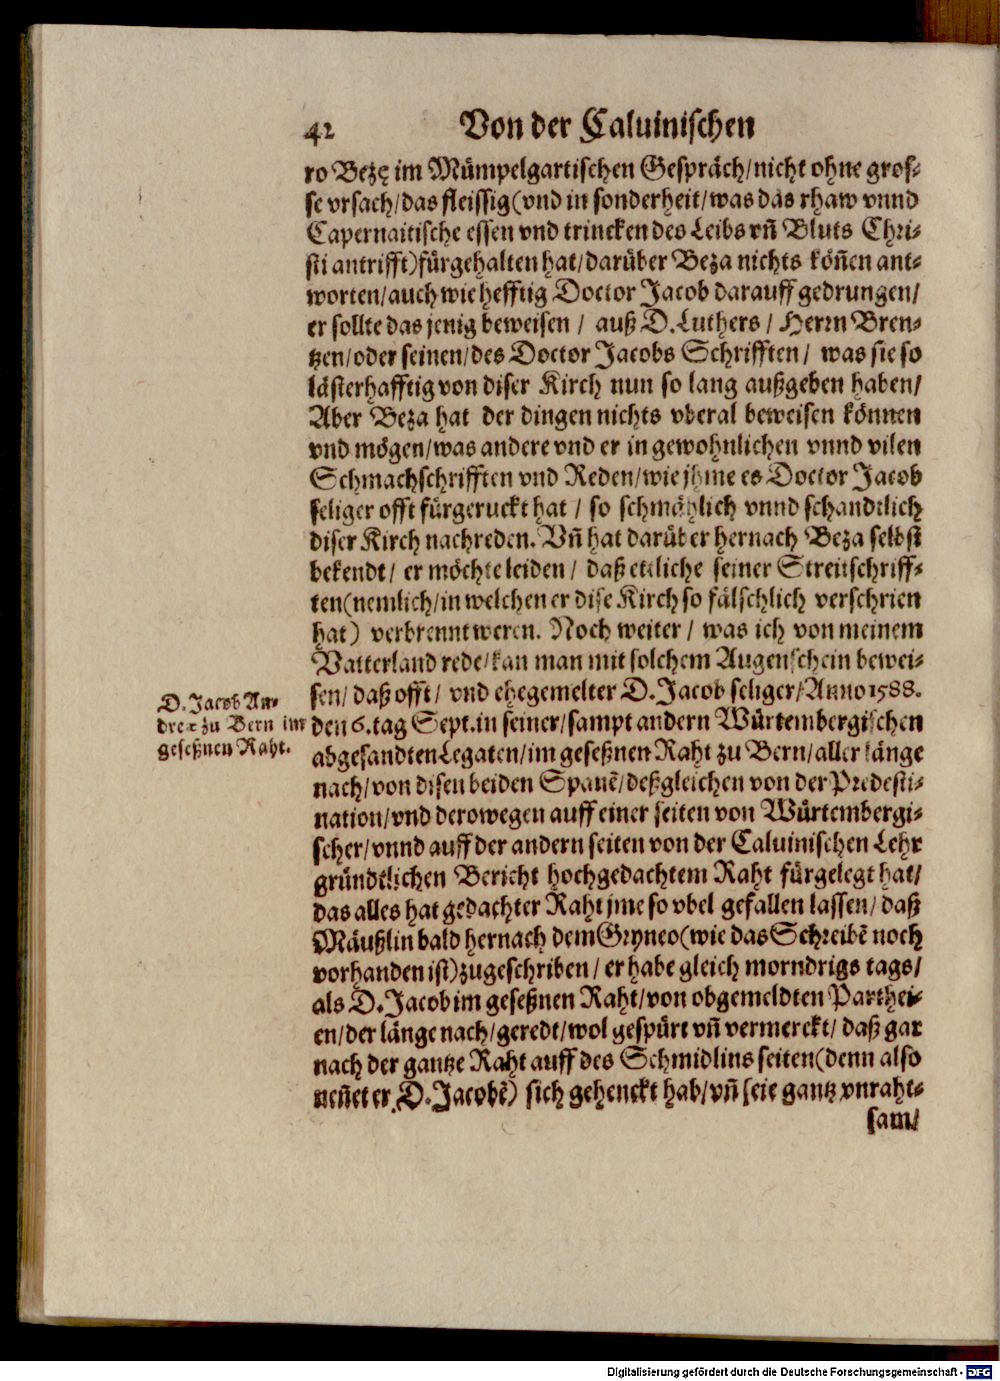 42 Von der Caluinischen
ro Bezę im Mümpelgartischen Gespräch/nicht ohne gros-
se vrsach/das fleissig(vnd in sonderheit/was das rhaw vnnd
Capernaitische essen vnd trincken des Leibs vñ Bluts Chri-
sti antrifft)fürgehalten hat/darüber Beza nichts köñen ant-
worten/auch wie hefftig Doctor Jacob darauff gedrungen/
er sollte das jenig beweisen / auß D.Luthers / Herrn Bren-
tzen/oder seinen/des Doctor Jacobs Schrifften / was sie so
lästerhafftig von diser Kirch nun so lang außgeben haben/
Aber Beza hat der dingen nichts vberal beweisen können
vnd mögen/was andere vnd er in gewohnlichen vnnd vilen
Schmachschrifften vnd Reden/wie jhme es Doctor Jacob
seliger offt fürgeruckt hat / so schmählich vnnd schandtlich
diser Kirch nachreden. Vñ hat darüber hernach Beza selbst
bekendt/ er möchte leiden / daß ettliche seiner Streitschriff-
ten(nemlich/in welchen er dise Kirch so fälschlich verschrien
hat) verbrennt weren. Noch weiter / was ich von meinem
Vatterland rede/kan man mit solchem Augenschein bewei-
sen/ daß offt/ vnd ehegemelter D.Jacob seliger/Anno 1588.
den 6.tag Sept.in seiner/sampt andern Würtembergischen
abgesandten Legaten/im geseßnen Raht zu Bern/aller länge
nach/von disen beiden Spanẽ/deßgleichen von der Predesti-
nation/vnd derowegen auff einer seiten von Würtembergi-
scher/vnnd auff der andern seiten von der Caluinischen Lehr
gründtlichen Bericht hochgedachtem Raht fürgelegt hat/
das alles hat gedachter Raht jme so vbel gefallen lassen/ daß
Mäußlin bald hernach dem Gryneo(wie das Schreibẽ noch
vorhanden ist)zugeschriben / er habe gleich morndrigs tags/
als D.Jacob im geseßnen Raht/von obgemeldten Parthei-
en/der länge nach/geredt/wol gespürt vñ vermerckt/ daß gar
nach der gantze Raht auff des Schmidlins seiten(denn also
neñet er D.Jacobẽ) sich gehenckt hab/vñ seie gantz vnraht-
sam/
D. Jacob An-
dreæ zu Bern im
geseßnen Raht.
Digitalisierung gefördert durch die Deutsche Forschungsgemeinschaft - DFG